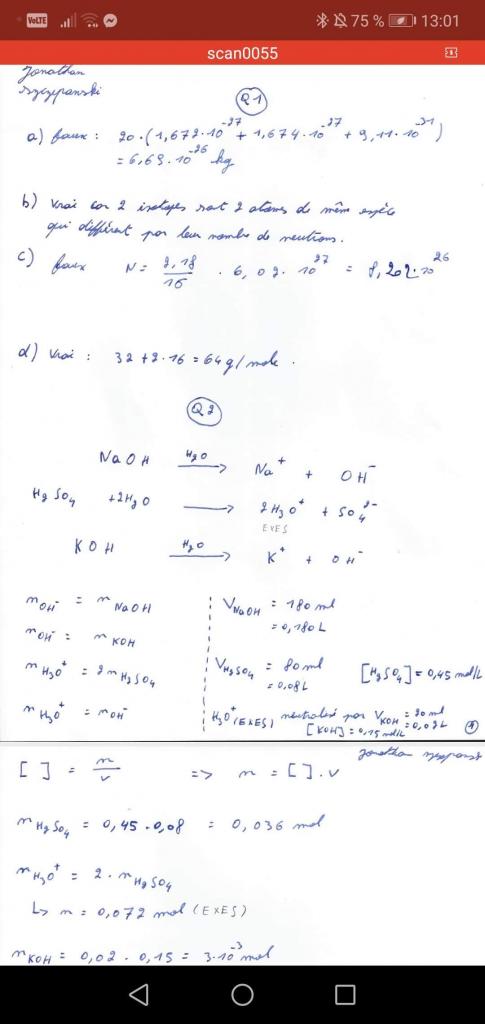 VoLTE 75 % 13:01
scan0055
Jonathan
Szczepanski
Q1
a) faux : 20 · (1,672 · 10^-27 + 1,674 · 10^-27 + 9,11 · 10^-31)
= 6,69 · 10^-26 kg
b) Vrai car 2 isotopes sont 2 atomes de même espèce
qui diffèrent par leur nombre de neutrons.
c) faux N = 2,18/16 · 6,02 · 10^27 = 8,202 · 10^26
d) Vrai : 32 + 2 · 16 = 64 g/mole .
Q2
NaOH —H2O→ Na+ + OH-
H2SO4 + 2H2O → 2H3O+ + SO4^2-
EXES
KOH —H2O→ K+ + OH-
nOH- = nNaOH
nOH- = nKOH
nH3O+ = 2nH2SO4
nH3O+ = nOH-
VNaOH = 180 ml
= 0,180L
VH2SO4 = 80 ml [H2SO4] = 0,45 mol/L
= 0,08L
H3O+(EXES) neutralisé par VKOH = 20 ml
[KOH] = 0,15 mol/L = 0,02L
1
Jonathan Szczepanski
[ ] = n/v => n = [ ] . v
nH2SO4 = 0,45 · 0,08 = 0,036 mol
nH3O+ = 2 · nH2SO4
↳ n = 0,072 mol (EXES)
nKOH = 0,02 · 0,15 = 3·10^-3 mol